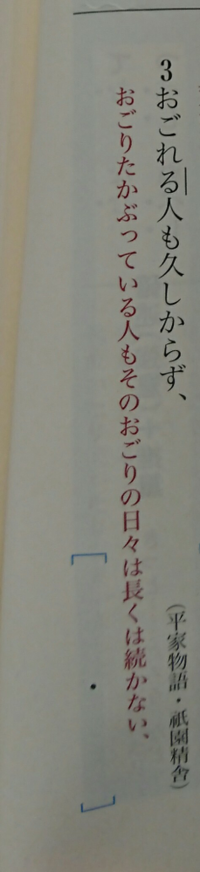 3おごれる人も久しからず、
(平家物語・祇園精舎)
おごりたかぶっている人もそのおごりの日々は長くは続かない、
[・]